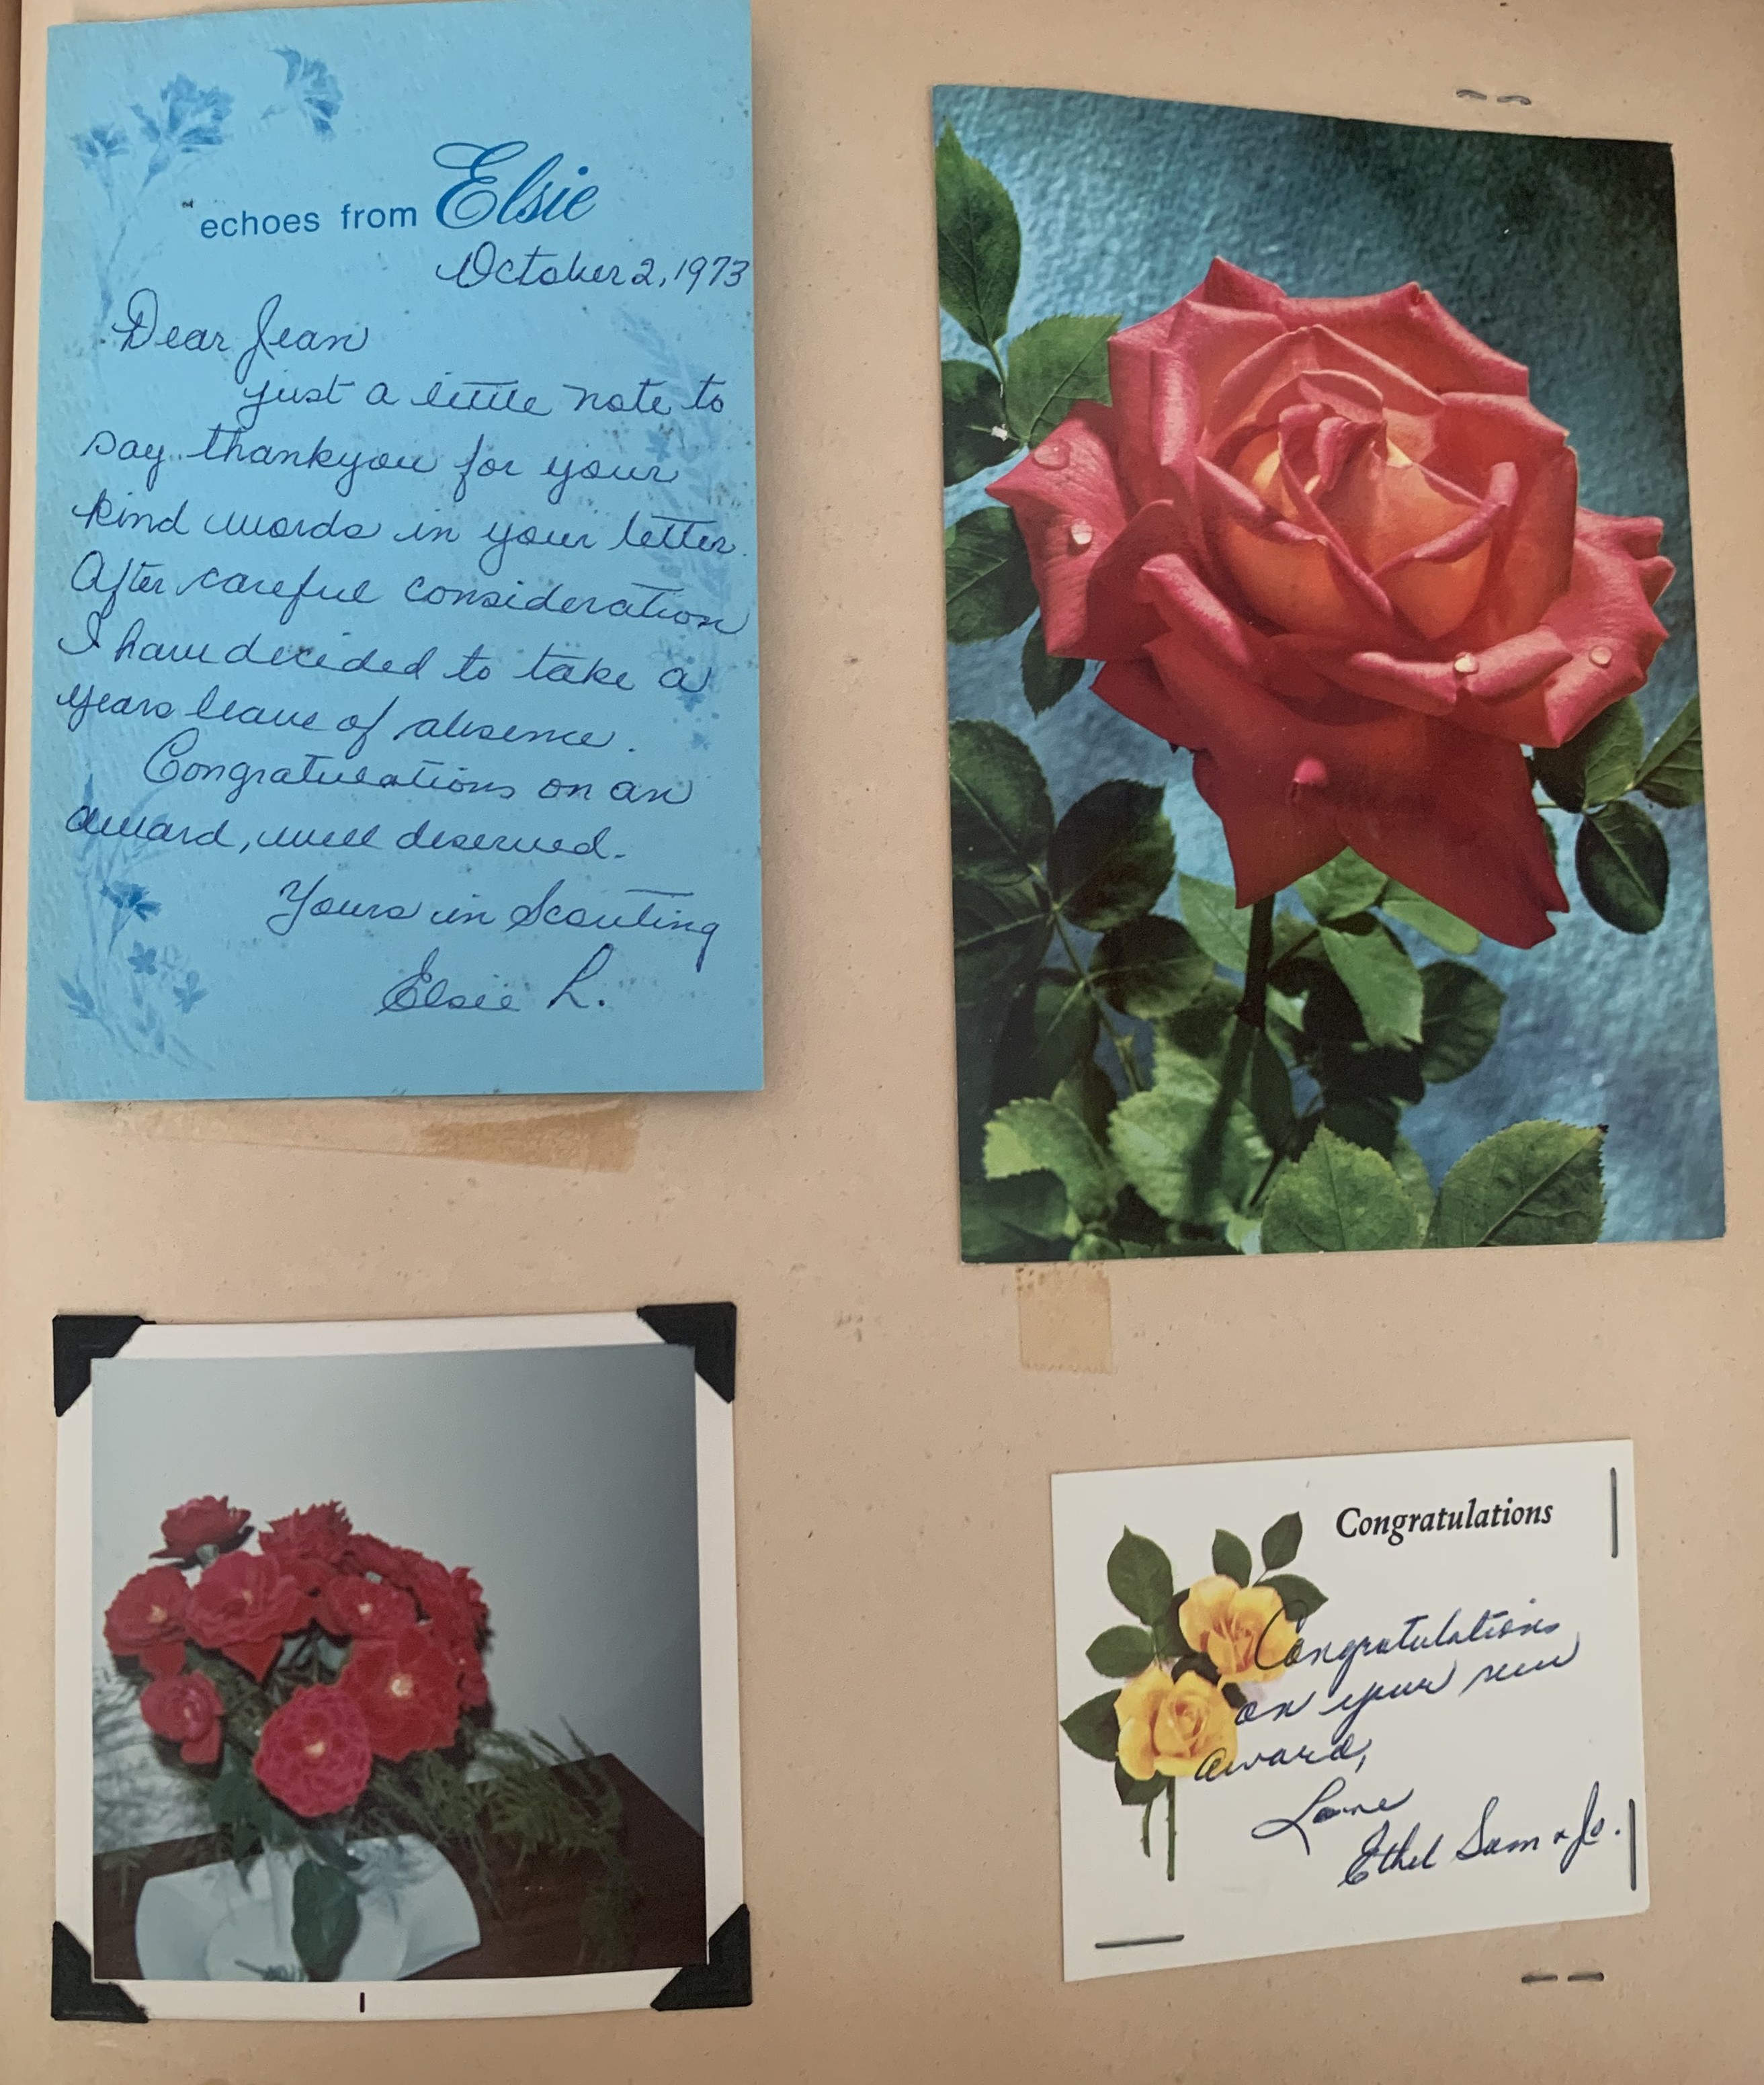 echoes from Elsie
October 2, 1973
Dear Jean
just a little note to
say thankyou for your
kind words in your letter.
After careful consideration
I have decided to take a
years leave of absence.
Congratulations on an
award, well deserved.
Yours in Scouting
Elsie L.
Congratulations
Congratulations
on your new
award,
Love
Ethel Sam & Jo.